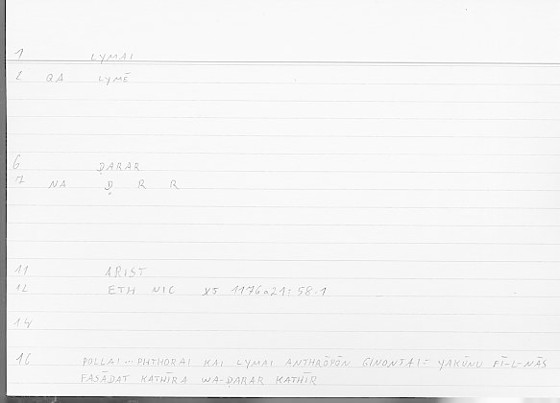 1 LYMAI
2 QA LYMĒ
6 ḌARAR
7 NA Ḍ R R
11 ARIST
12 ETH NIC 1176a21: 58.1
14
16 POLLAI -- PHTHORAI KAI LYMAI ANTHRŌPŌN GINONTAI = YAKŪNU FĪ-L-NĀS
FASĀDAT KATHĪRA WA-ḌARAR KATHĪR